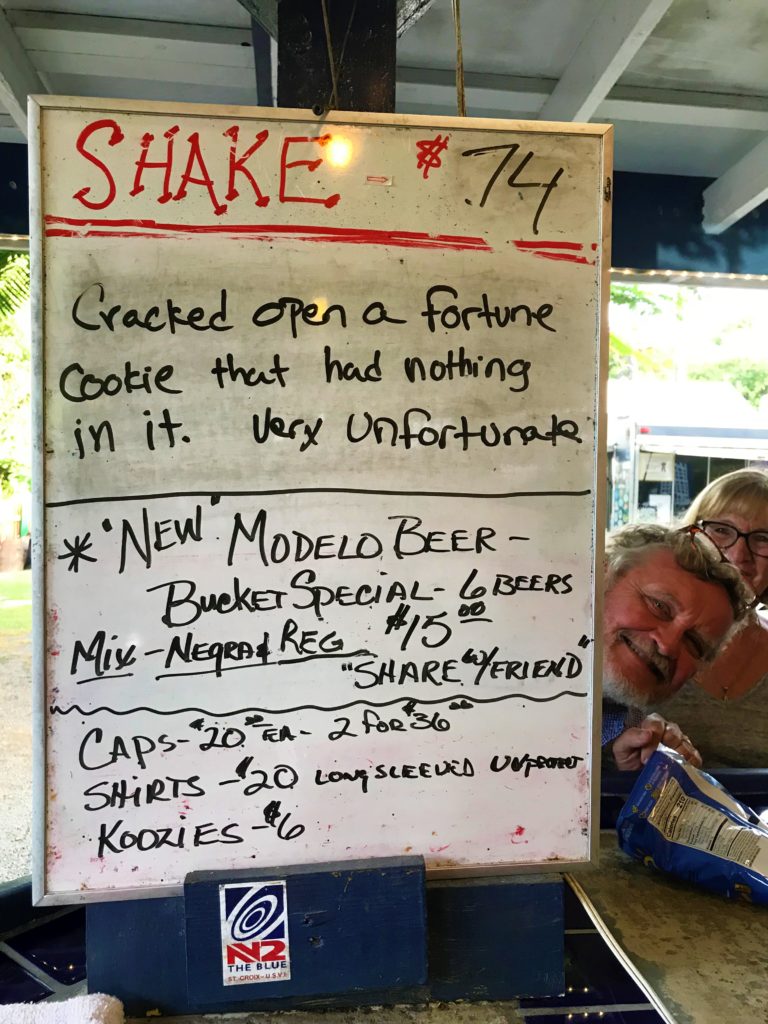 SHAKE - $ .74
Cracked open a fortune
cookie that had nothing
in it. Very Unfortunate
* "NEW" MODELO BEER -
BUCKET SPECIAL - 6 BEERS
MIX - NEGRA & REG $15.00
"SHARE W/FRIEND"
CAPS - $20.00 EA - 2 FOR $36.00
SHIRTS - $20 LONG SLEEVED UV PROTECT
KOOZIES - $6
N2
THE BLUE
ST. CROIX - U.S.V.I.